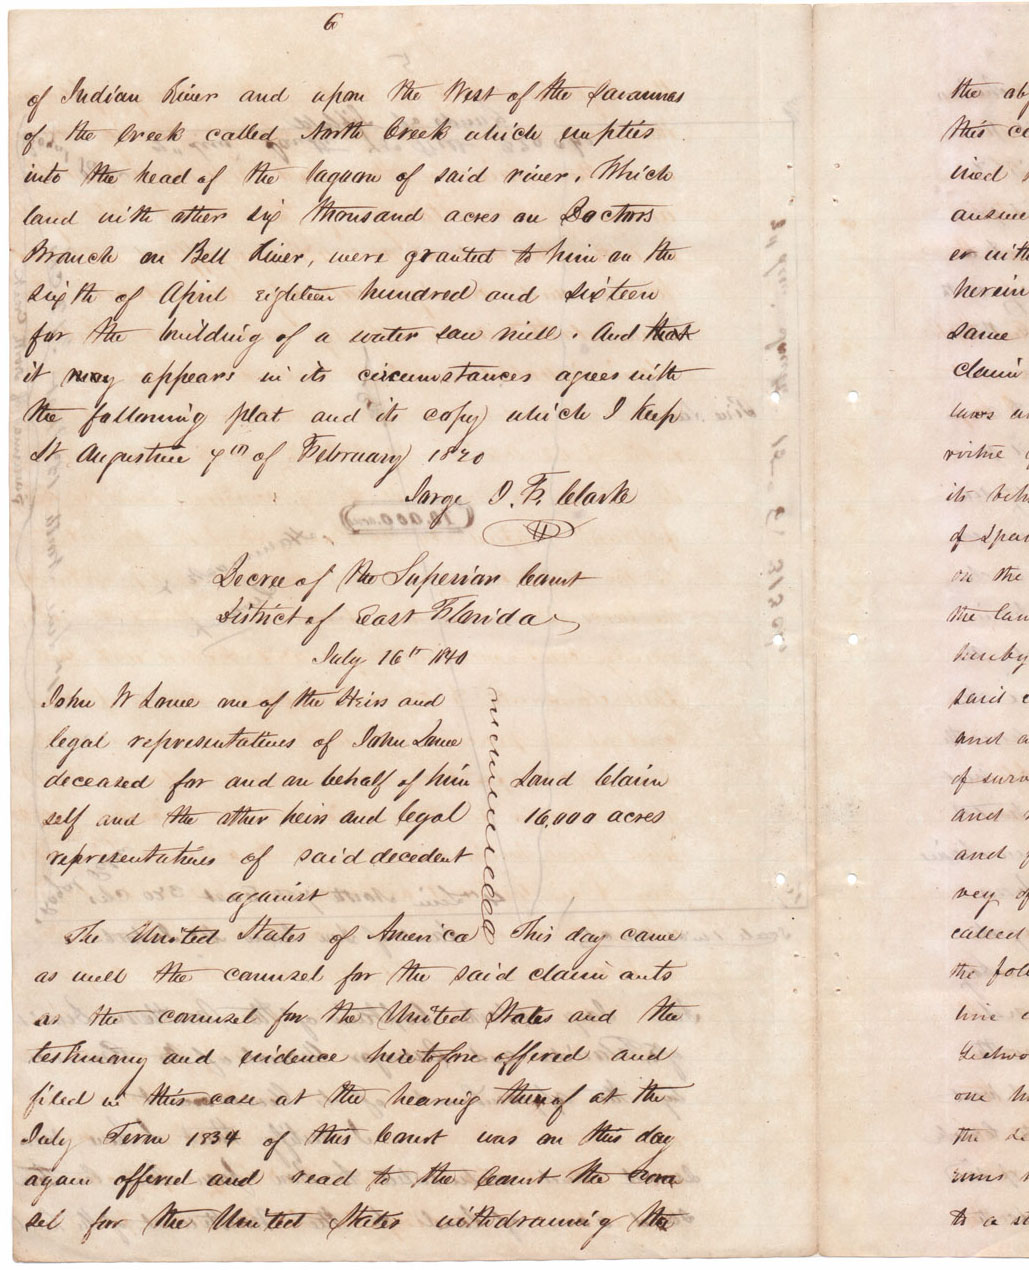 6
of Indian River and upon the West of the Savannas
of the Creek called North Creek which empties
into the head of the laguan of said river. Which
land with other six thousand acres on Doctors
Branch on Bell River, were granted to him on the
sixth of April eighteen hundred and sixteen
for the building of a water saw mill. And that
it may appears in its circumstances agrees with
the following plat and its copy) which I keep
St Augustine 7th of February) 1820
Jorge J. F. Clarke
Decree of the Superior Court
District of East Florida
July 16th 1840
John W Lowe one of the Heirs and
legal representatives of John Lowe
deceased for and on behalf of him
self and the other heirs and legal
representatives of said decedent
against
The United States of America
Land Claim
16,000 acres
This day came
as well the counsel for the said claim ants
as the counsel for the United States and the
testimony and evidence heretofore offered and
filed in this case at the hearing thereof at the
July Term 1834 of this Court was on this day
again offered and read to the Court the coun
sel for the United States withdrawing the
the
this
ined
answe
er with
herein
same
claim
laws
virtue
its
of Spa
on the
the law
hereby
said
and
of surv
and
and
vey of
called
the
line
one
the
to a